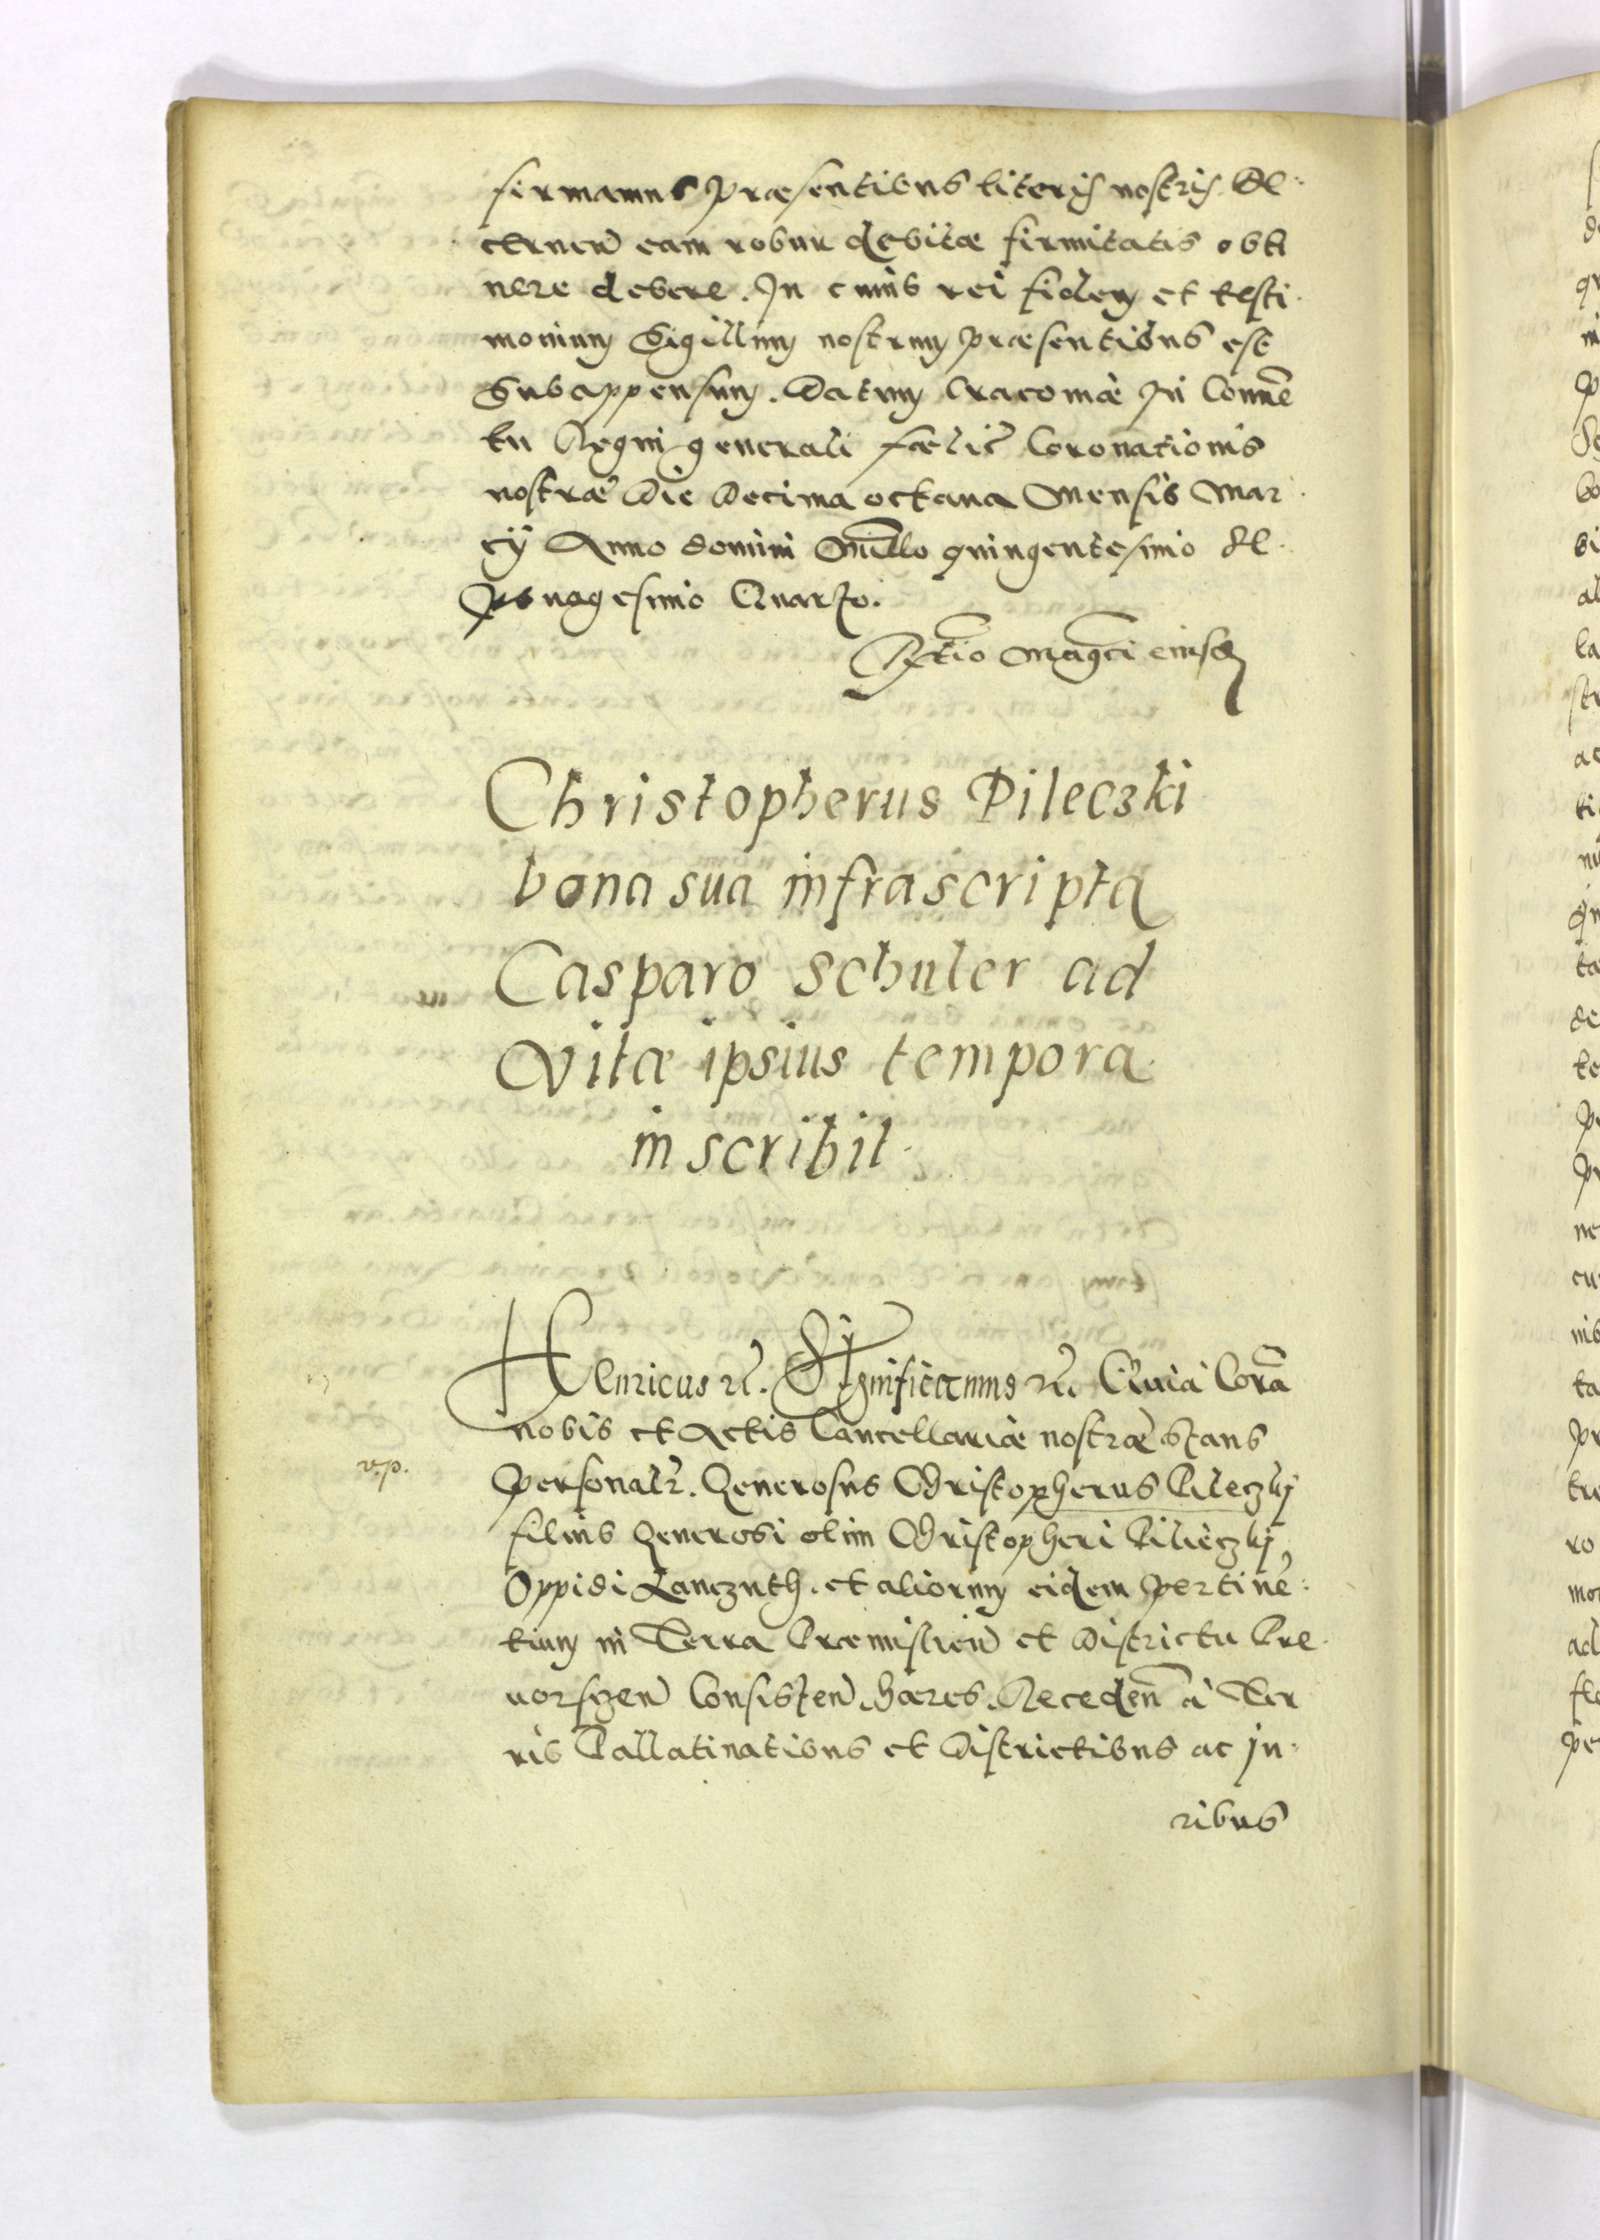 firmamus præsentibus literis nostris. De-
cernen̄ eam robur debitæ firmitatis obti
nere debere. In cuius rei fidem et testi-
monium Sigillum nostrum præsentibus est
Subappensum. Datum Cracoviæ In Conuē
tu Regni generali fælicis Coronationis
nostræ Die Decima octaua Mensis Mar-
cÿ Anno domini Millo quingentesimo Se-
ptuagesimo Quarto.
R̄tio Mag̃ci eiusd
Christopherus Pileczki
bona sua infrascripta
Casparo Schuler ad
Vitæ ipsius tempora
inscribit.
Henricus rc̄. Significamus rc̄. Quia Corā
nobis et Actis Cancellariæ nostræ stans
v.p.
Personalr̄. Generosus Christopherus Pileczkÿ
filius Generosi olim Christopheri Pilieczkÿ,
Oppidi Lanczuth. et aliorum eidem pertinē-
tium in Terra Præmislien̄ et Districtu Pre-
uorscen̄ Consisten̄. hæres. Receden̄ à Ter
ris Pallatinatibus et Districtibus ac iu-
ribus